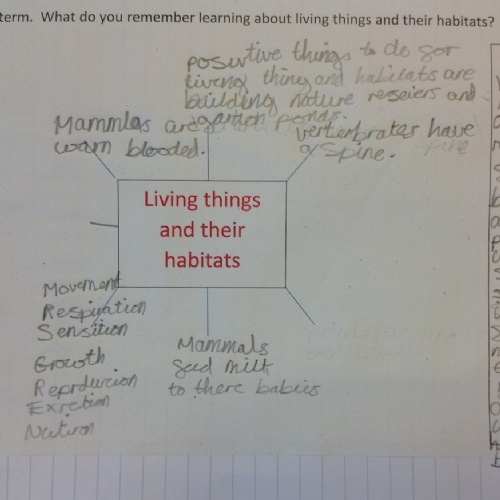 term. What do you remember learning about living things and their habitats?
posutive things to do for
liveng thing and habitats are
building nature reseiers and
garden ponds.
Mammlas are
warn blooded.
verterbrates have
a spine.
Living things
and their
habitats
Movement
Respiyation
Sensition
Growth
Reprducion
Exretion
Nutiron
Mammals
feed milk
to there babies